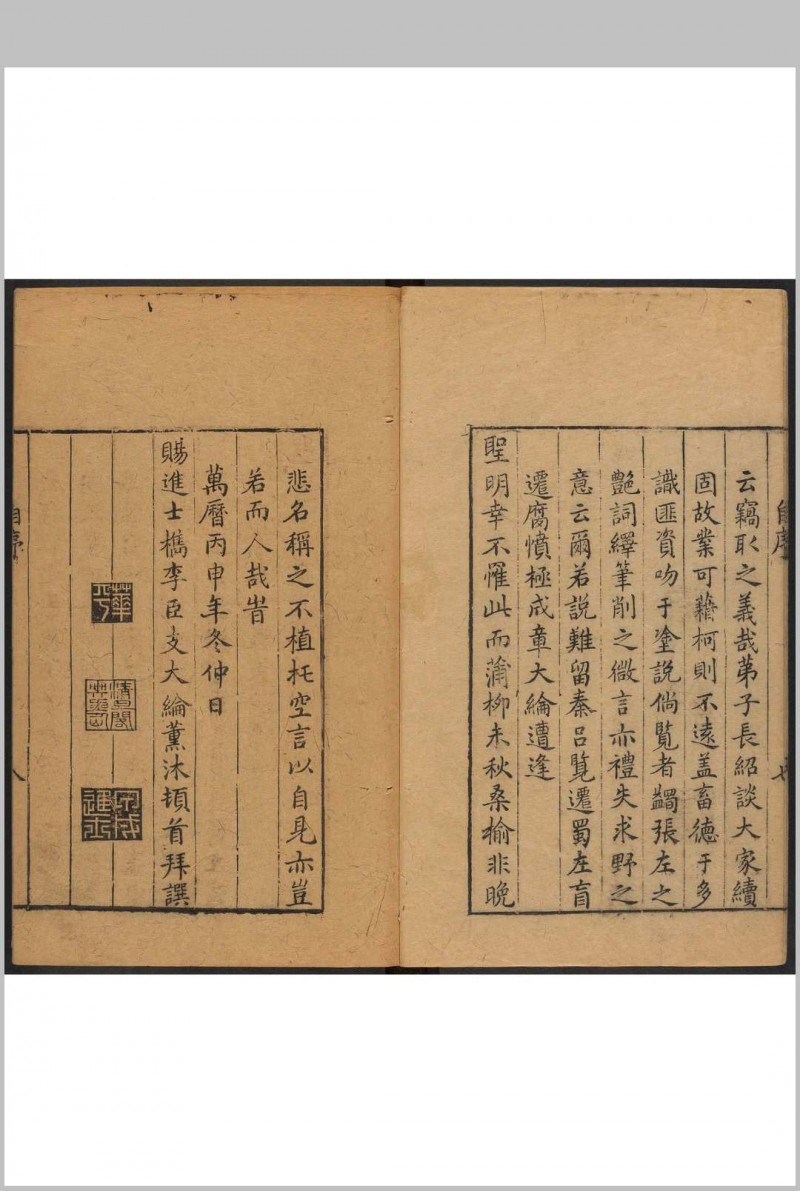 自序
云竊取之義哉弟子長紹談大家續
固故業可藉柯則不遠蓋畜德于多
識匪資吻于塗說倘覧者蠲張左之
艷詞繹筆削之微言亦禮失求野之
意云爾若說難留秦呂覧遷蜀左盲
遷腐憤極成章大綸遭逢
聖明幸不罹此而蒲柳未秋桑榆非晚
悲名稱之不植托空言以自見亦豈
若而人哉旹
萬曆丙申年冬仲日
賜進士檇李臣支大綸薰沐頓首拜譔
華平
甲戌進士
自序
八